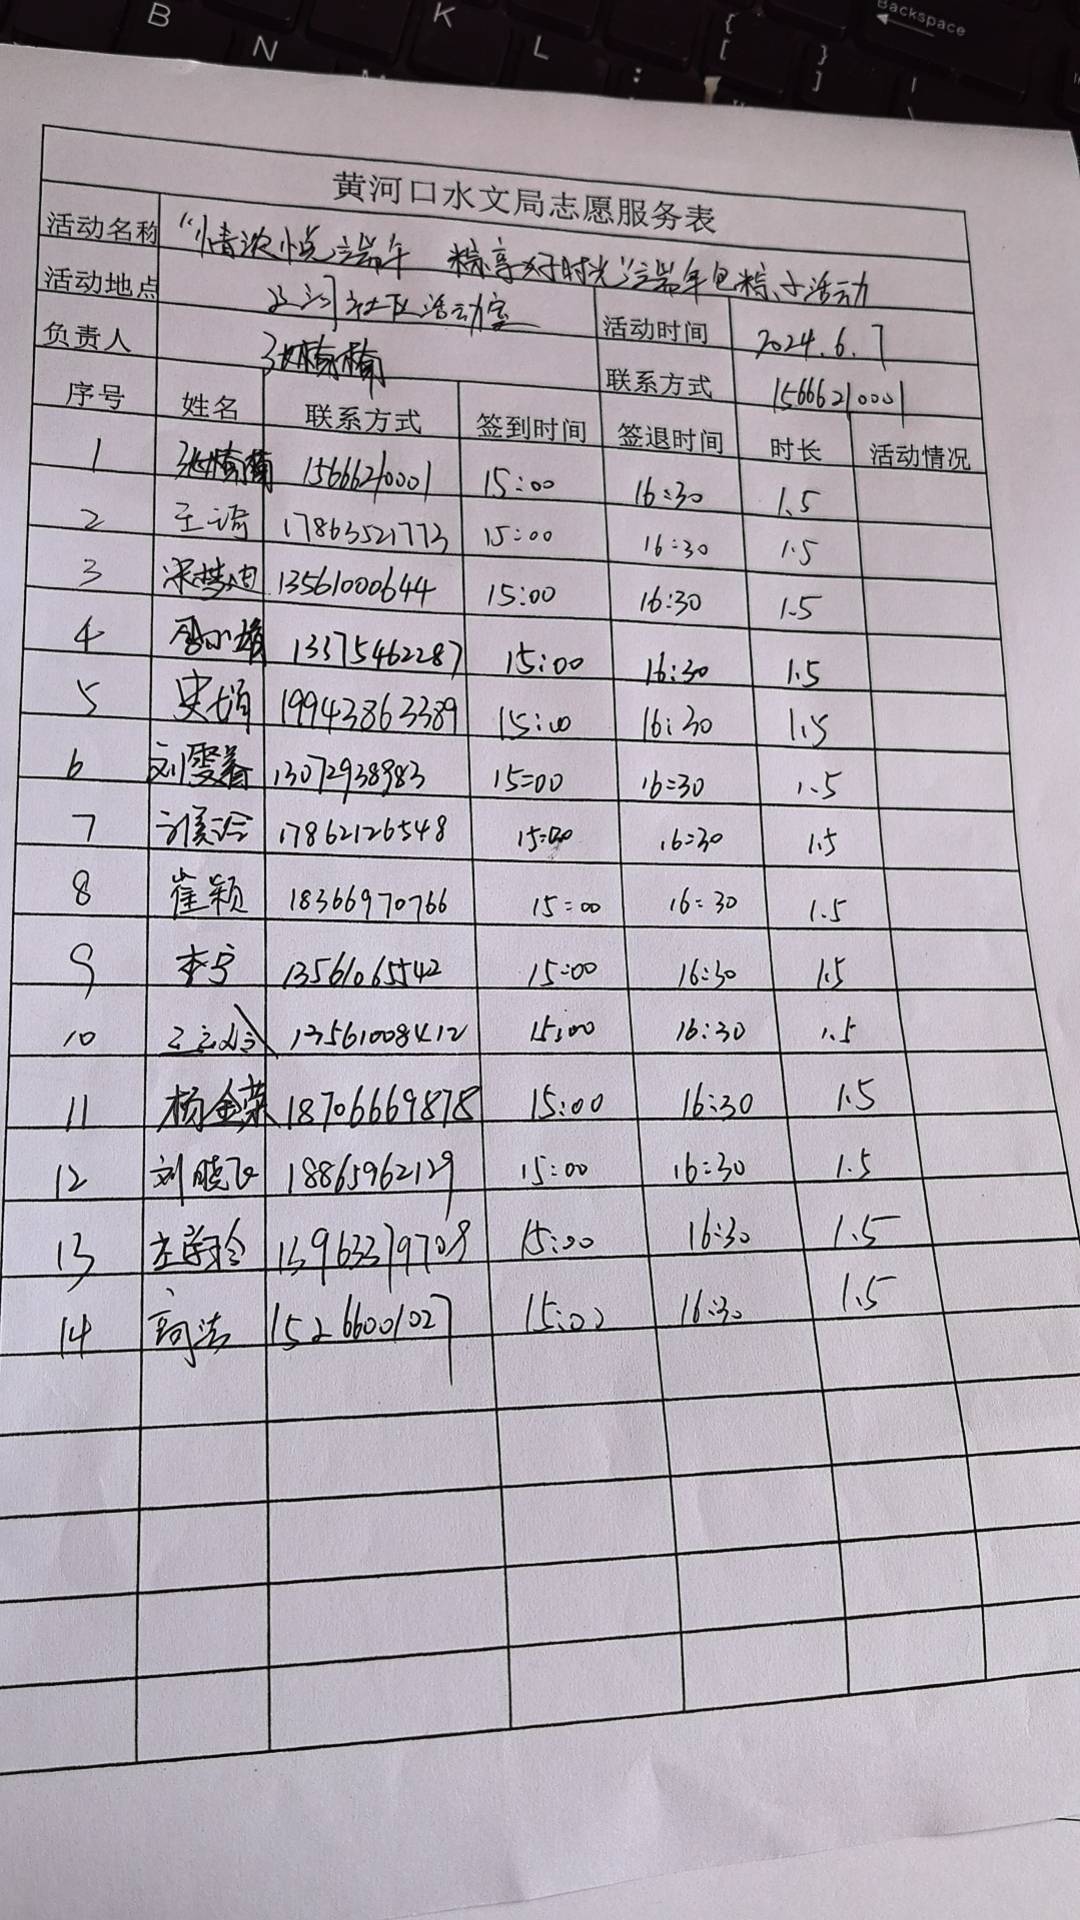 B N K L { [ } ] : Backspace
黄河口水文局志愿服务表
活动名称 "情浓悦端午 粽享好时光"端午包粽子活动
活动地点 社区活动室 活动时间 2024.6.7
负责人 联系方式 15666210001
序号 姓名 联系方式 签到时间 签退时间 时长 活动情况
1 15666210001 15:00 16:30 1.5
2 王琦 17863521773 15:00 16:30 1.5
3 13561000644 15:00 16:30 1.5
4 13375462287 15:00 16:30 1.5
5 19943863389 15:00 16:30 1.5
6 刘雯馨 13072938983 15:00 16:30 1.5
7 17862126548 15:00 16:30 1.5
8 崔颖 18366970766 15:00 16:30 1.5
9 李宁 13561065542 15:00 16:30 1.5
10 13561008412 15:00 16:30 1.5
11 杨金荣 18706669878 15:00 16:30 1.5
12 刘晓飞 18865962129 15:00 16:30 1.5
13 13963379708 15:00 16:30 1.5
14 高洁 15266001027 15:00 16:30 1.5